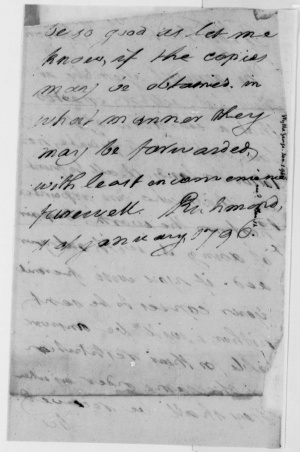 be so good as let me
know, if the copies
may be obtained. in
what manner they
may be forwarded,
with least inconvenience
farewell. Richmond,
january, 1796.